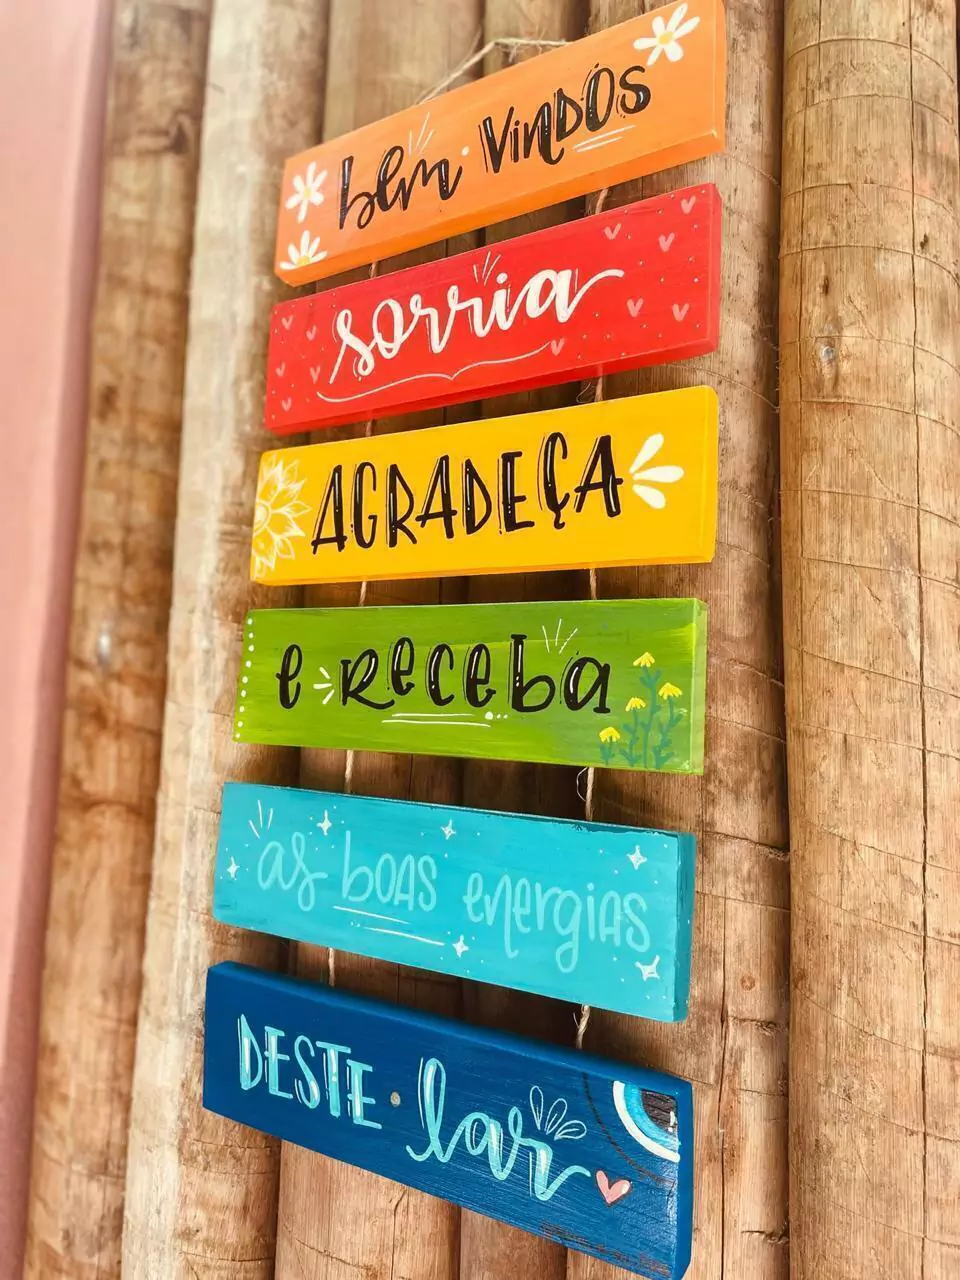 bem · VINDOS
sorria
AGRADEÇA
e receba
as boas energias
DESTE · lar